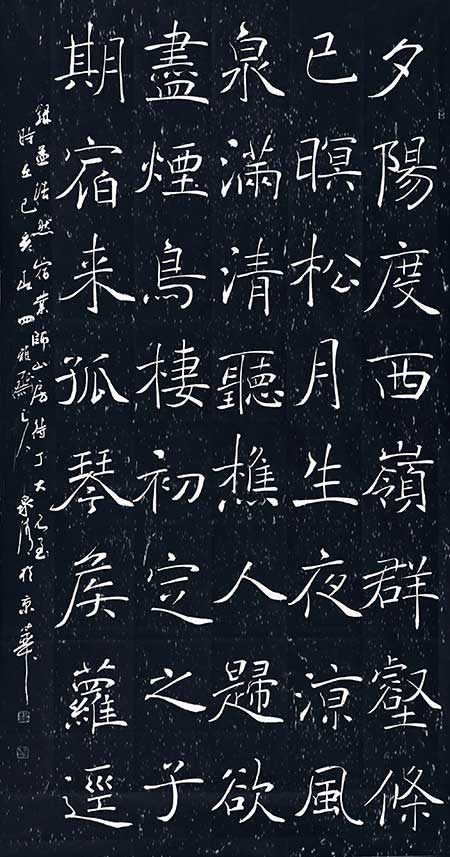 夕陽度西嶺群壑條
已暝松月生夜涼風
泉滿清聽樵人歸欲
盡煙鳥棲初定之子
期宿来孤琴矦蘿逕
錄孟浩然宿業師山房待丁大不至
時在己亥於京華